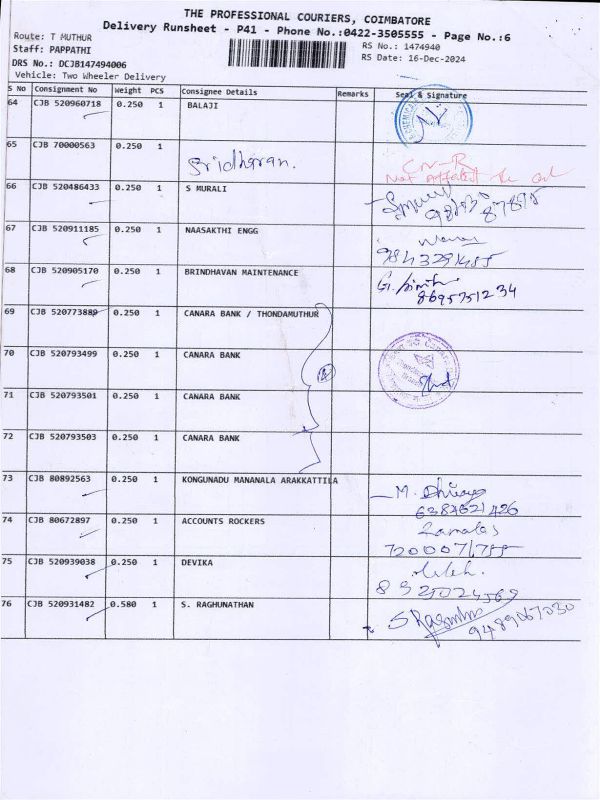 THE PROFESSIONAL COURIERS, COIMBATORE
Delivery Runsheet - P41 - Phone No.:0422-3505555 - Page No.:6
Route: T MUTHUR
RS No.: 1474940
Staff: PAPPATHI
RS Date: 16-Dec-2024
DRS No.: DCJB147494006
Vehicle: Two Wheeler Delivery
S No Consignment No Weight PCS Consignee Details Remarks Seal & Signature
64 CJB 520960718 0.250 1 BALAJI
65 CJB 70000563 0.250 1 Sridharan.
66 CJB 520486433 0.250 1 S MURALI
67 CJB 520911185 0.250 1 NAASAKTHI ENGG
68 CJB 520905170 0.250 1 BRINDHAVAN MAINTENANCE
8695751234
69 CJB 520773889 0.250 1 CANARA BANK / THONDAMUTHUR
70 CJB 520793499 0.250 1 CANARA BANK
71 CJB 520793501 0.250 1 CANARA BANK
72 CJB 520793503 0.250 1 CANARA BANK
73 CJB 80892563 0.250 1 KONGUNADU MANANALA ARAKKATTILA
74 CJB 80672897 0.250 1 ACCOUNTS ROCKERS
75 CJB 520939038 0.250 1 DEVIKA
76 CJB 520931482 0.580 1 S. RAGHUNATHAN